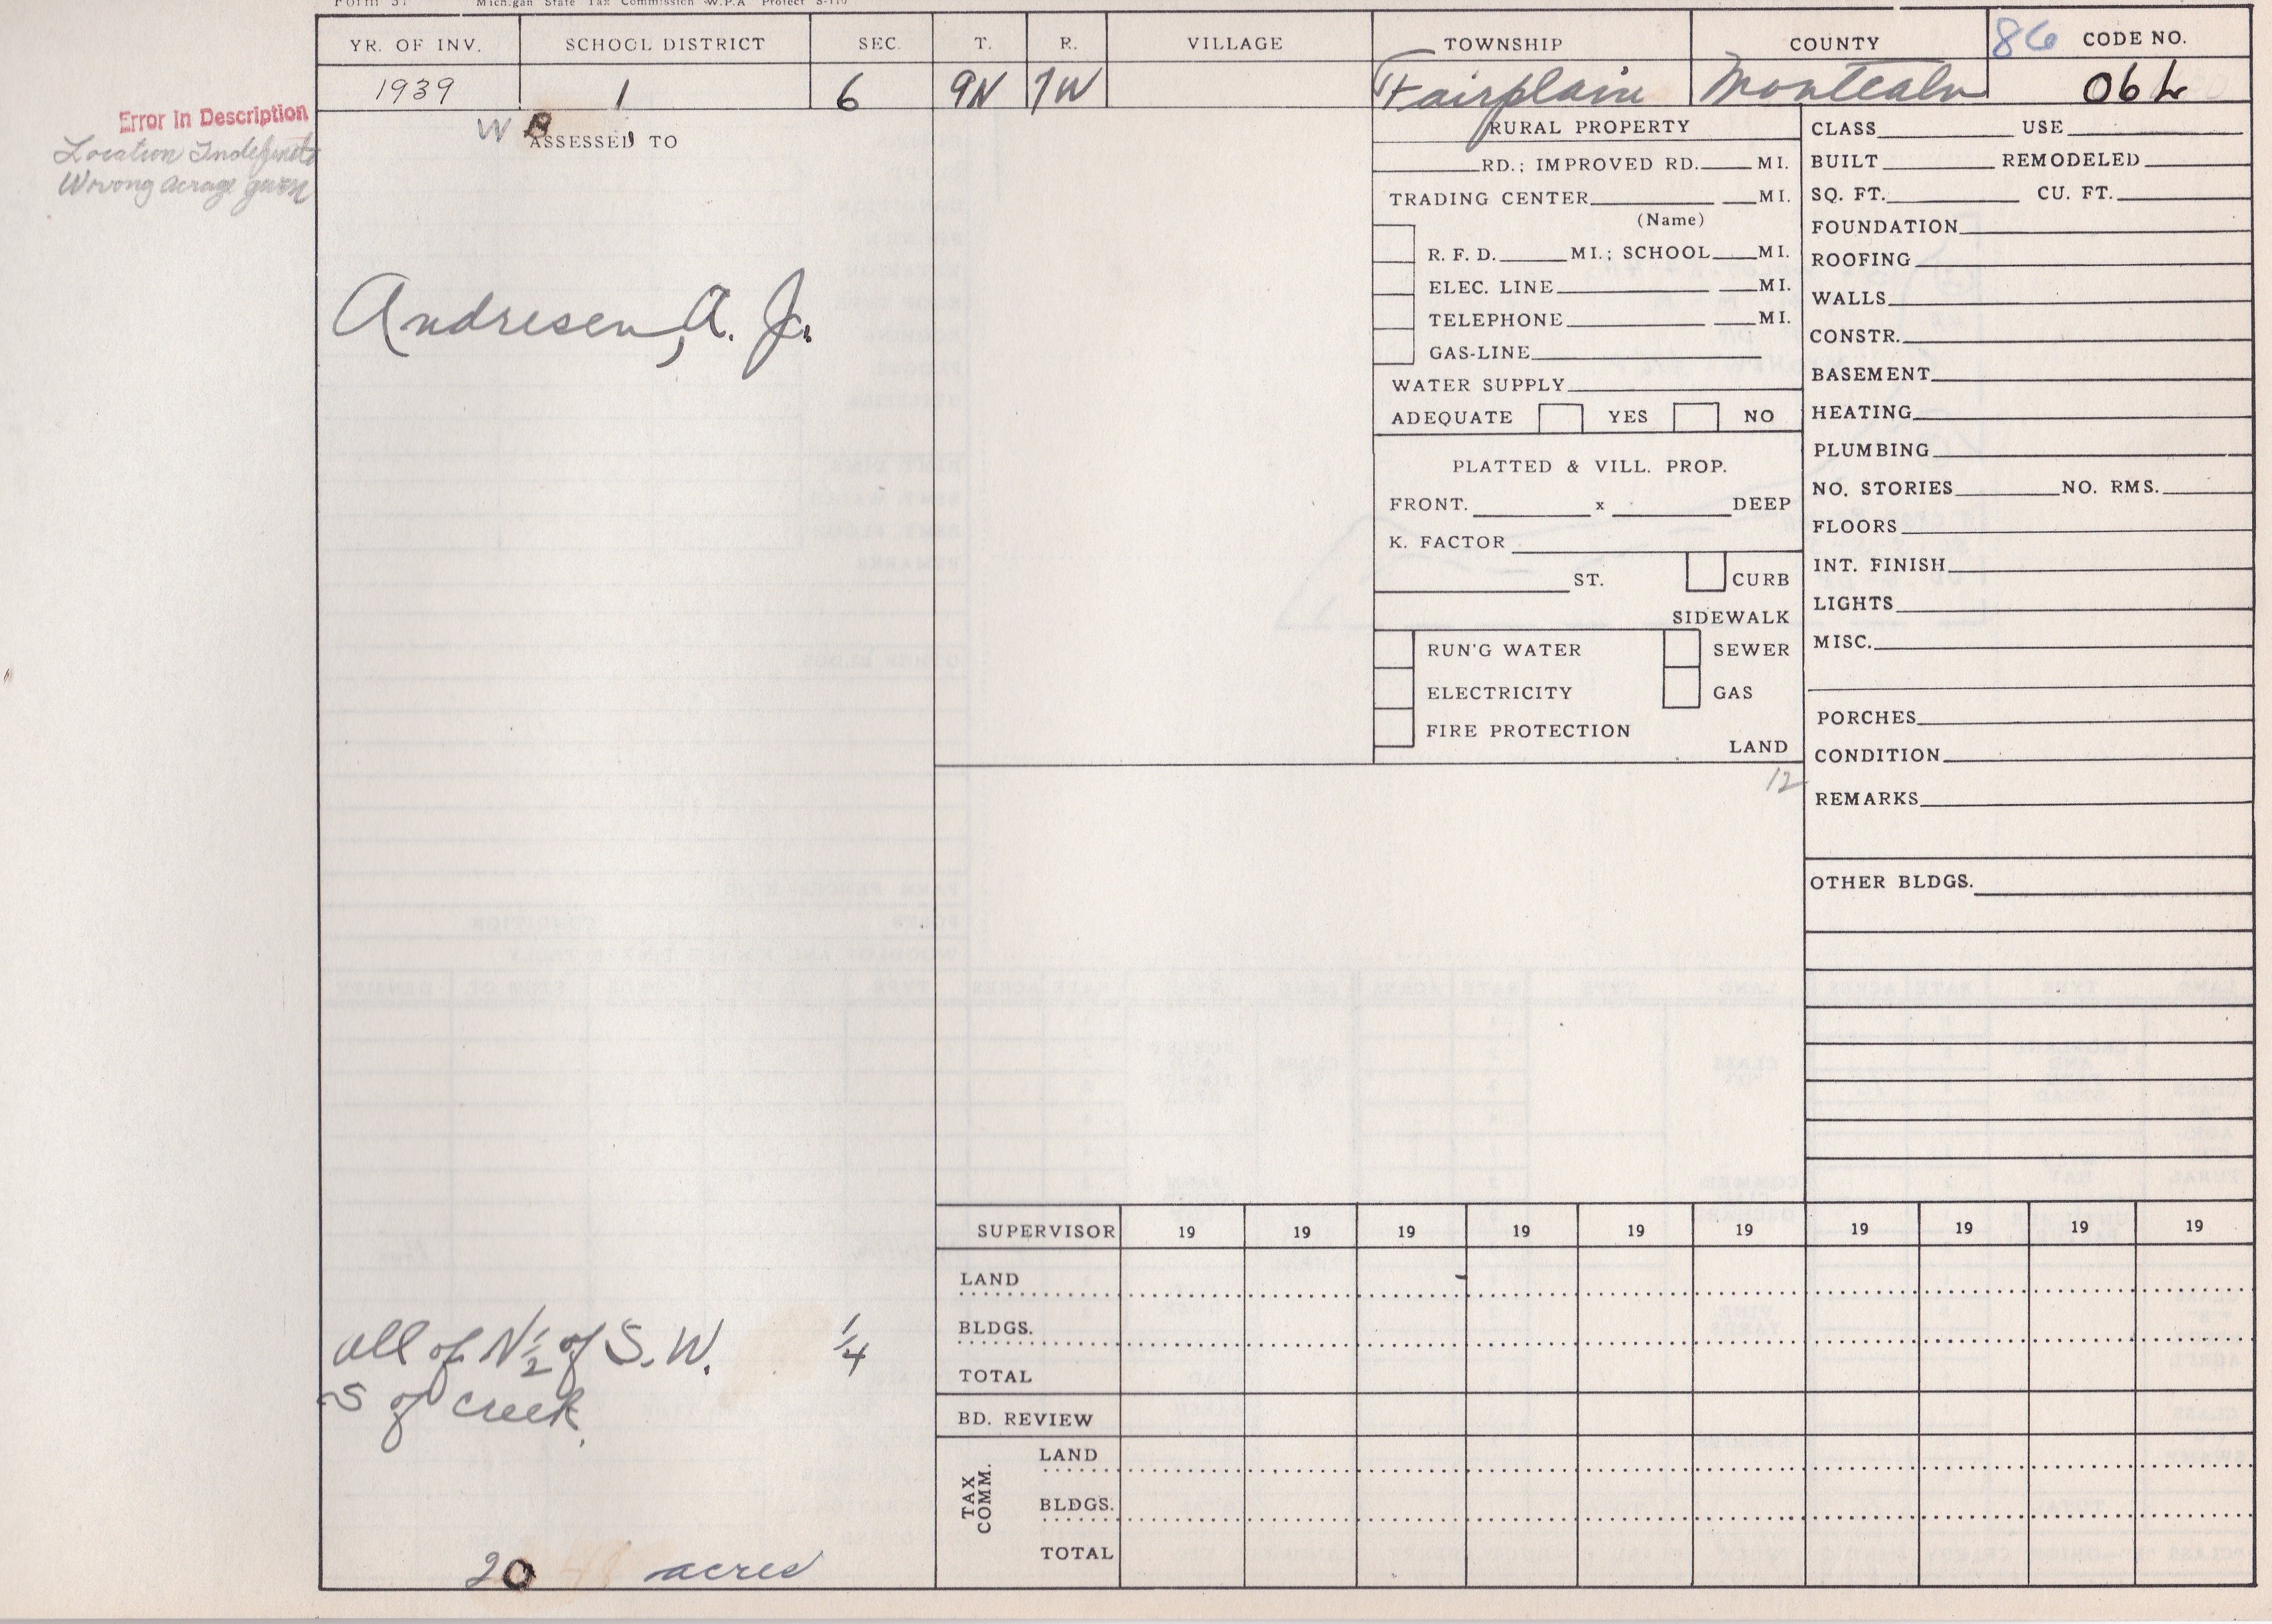 Form 37 Michigan State Tax Commission W.P.A Project S-110
YR. OF INV. SCHOOL DISTRICT SEC. T. R. VILLAGE TOWNSHIP COUNTY 86 CODE NO.
1939 1 6 9N 7W Fairplain Montcalm 06L
Error In Description
Location Indefinite
Wrong acrage given
W
ASSESSED TO
Andresen, A. J.
all of N 1/2 of S. W. 1/4
S of creek
20 acres
RURAL PROPERTY
RD.; IMPROVED RD. MI.
TRADING CENTER MI.
(Name)
R. F. D. MI.; SCHOOL MI.
ELEC. LINE MI.
TELEPHONE MI.
GAS-LINE
WATER SUPPLY
ADEQUATE YES NO
PLATTED & VILL. PROP.
FRONT. x DEEP
K. FACTOR
ST. CURB
SIDEWALK
RUN'G WATER SEWER
ELECTRICITY GAS
FIRE PROTECTION
LAND
12
CLASS USE
BUILT REMODELED
SQ. FT. CU. FT.
FOUNDATION
ROOFING
WALLS
CONSTR.
BASEMENT
HEATING
PLUMBING
NO. STORIES NO. RMS.
FLOORS
INT. FINISH
LIGHTS
MISC.
PORCHES
CONDITION
REMARKS
OTHER BLDGS.
SUPERVISOR 19 19 19 19 19 19 19 19 19 19
LAND
BLDGS.
TOTAL
BD. REVIEW
TAX COMM.
LAND
BLDGS.
TOTAL